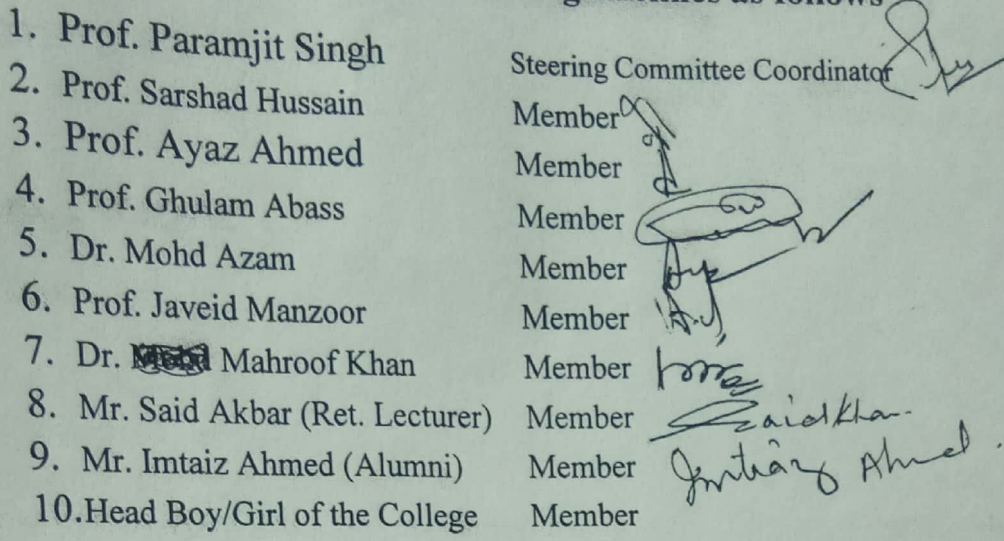 as follows
1. Prof. Paramjit Singh Steering Committee Coordinator
2. Prof. Sarshad Hussain Member
3. Prof. Ayaz Ahmed Member
4. Prof. Ghulam Abass Member
5. Dr. Mohd Azam Member
6. Prof. Javeid Manzoor Member
7. Dr. Mahroof Khan Member
8. Mr. Said Akbar (Ret. Lecturer) Member Zaid Khan
9. Mr. Imtaiz Ahmed (Alumni) Member Imtiaz Ahmed
10.Head Boy/Girl of the College Member